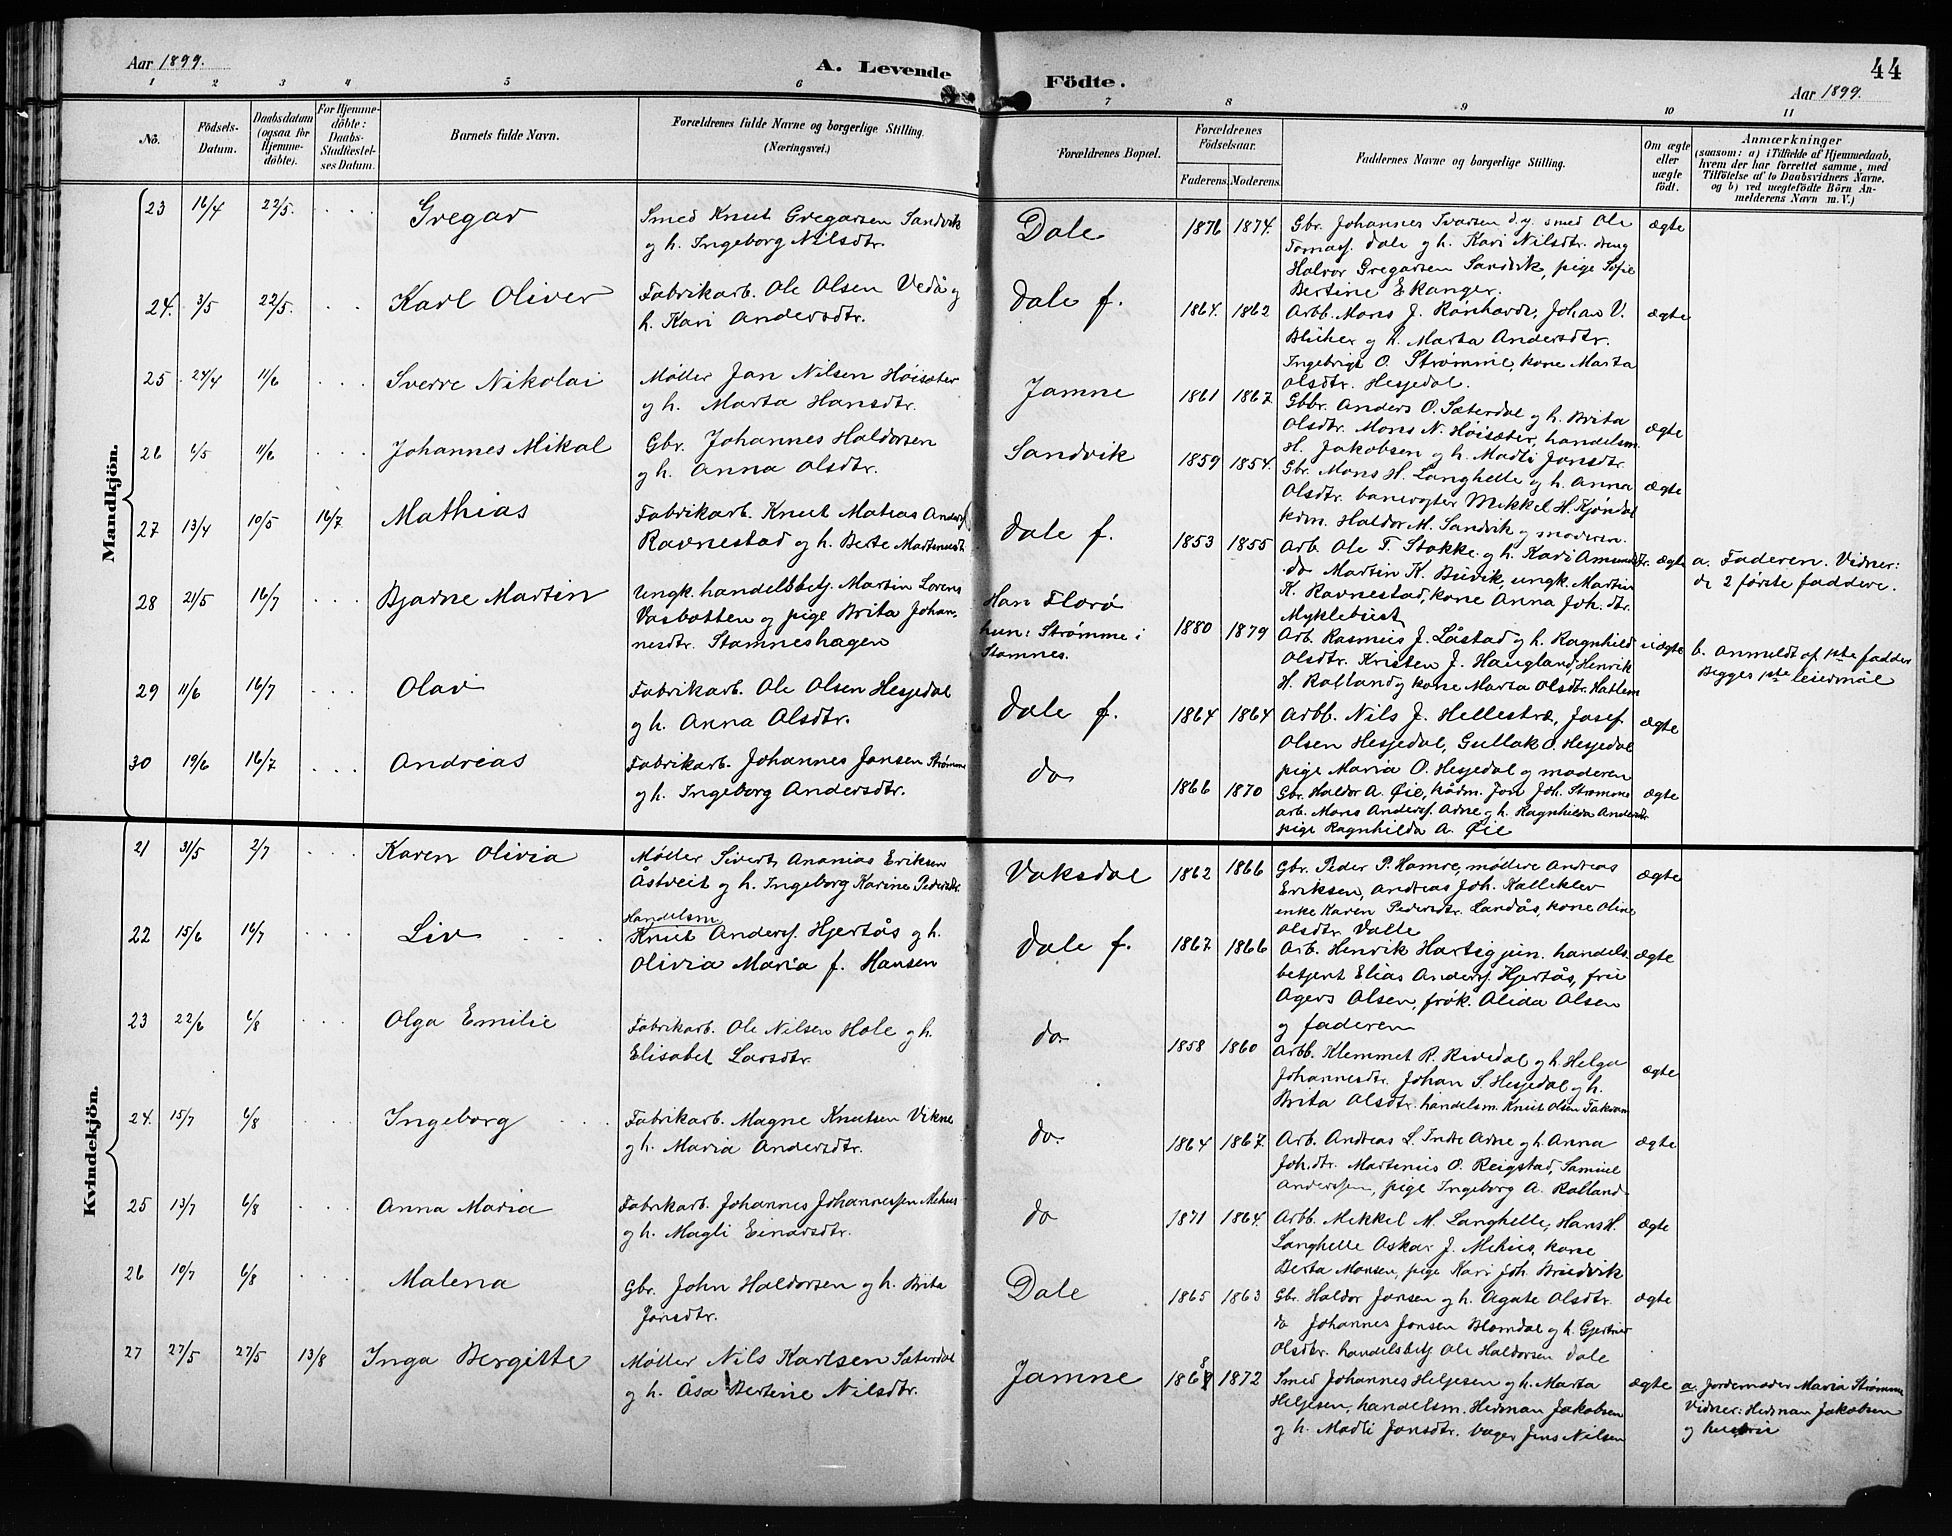 44
Aar 1899.
A. Levende Födte.
Aar 1899.
1 2 3 4 5 6 7 8 9 10 11
No.
Födsels-Datum.
Daabsdatum (ogsaa for Hjemmedöbte).
For Hjemmedöbte: Daabs-Stadfæstelses Datum.
Barnets fulde Navn.
Forældrenes fulde Navne og borgerlige Stilling. (Næringsvei.)
Forældrenes Bopæl.
Forældrenes Födselsaar.
Faderens. Moderens.
Faddernes Navne og borgerlige Stilling.
Om ægte eller uægte födt.
Anmærkninger
(saasom: a) i Tilfælde af Hjemmedaab, hvem der har forrettet samme, med Tilföielse af to Daabsvidners Navne, og b) ved uegtefödte Börn Anmelderens Navn m. V.)
Mandkjön.
23 16/4 22/5. Gregar
Smed Knut Gregarsen Sandvik
og h. Ingeborg Nilsdtr.
Dale 1876 1874.
Gbr. Johannes Ivarsen d.y. smed Ole
Tomass. Dale og h. Kari Nilsdtr. dreng
Halvor Gregarsen Sandvik, pige Sofie
Bertine Ekanger.
ægte
24. 3/5 22/5. Karl Oliver
Fabrikarb. Ole Olsen Vedå og
h. Kari Andersdtr.
Dale f. 1864. 1862
Arbb. Mons J. Rønhovde, Johan V.
Blücher og h. Marta Andersdtr.
Ingebrigt O. Strømme, kone Marta
Olsdtr. Hesjedal.
ægte
25 24/4 11/6 Sverre Nikolai
Møller Jan Nilsen Høisæter
og h. Marta Hansdtr.
Jamne 1861 1867
Gbbr. Anders O. Sæterdal og h. Brita
Olsdtr. Mons N. Høisæter, handelsm.
H. Jakobsen og h. Madli Jonsdtr.
ægte
26 6/5 11/6 Johannes Mikal
Gbr. Johannes Haldorsen
og h. Anna Olsdtr.
Sandvik 1859 1854.
Gbr. Mons H. Langhelle og h. Anna
Olsdtr. banevogter Mikkel H. Kjøndal
kdm. Haldor M. Sandvik og moderen.
ægte
27 13/4 10/5 16/7 Mathias
Fabrikarb. Knut Matias Anders
Ravnestad og h. Berte Martinusdt.
Dale f. 1853 1855
Arb. Ole T. Stokke og h. Kari Amundsdtr.
do Martin K. Buvik, ungk. Martin
K. Ravnestad, kone Anna Joh.dtr.
Myklebust
ægte
a. Faderen. Vidner:
de 2 første faddere.
28 21/5 16/7 Bjarne Martin
Ungk. handelsbetj. Martin Lorens
Vasbotten og pige Brita Johan-
nesdtr. Stamneshagen
Han Florø
hun: Strømme i
Stamnes.
1880 1879
Arb. Rasmus J. Låstad og h. Ragnhild
Olsdtr. Kristen J. Haugland, Henrik
H. Rolland og kone Marta Olsdtr. Hatlem
uægte
b. anmeldt af 1ste fadder
Begges 1ste leiermål
29 11/6 16/7 Olav
Fabrikarb. Ole Olsen Hesjedal
og h. Anna Olsdtr.
Dale f. 1864 1864
Arbb. Nils J. Hellestræ, Josef
Olsen Hesjedal, Gullak O. Hesjedal
pige Maria O. Hesjedal og moderen
ægte
30 19/6 16/7 Andreas
Fabrikarb. Johannes Jonsen Strømme
og h. Ingeborg Andersdtr.
do 1866 1870
Gbr. Haldor A. Øie, kådm. Jon Joh. Strømme
arb. Mons Anderss. Arne og h. Ragnhilda Andersdtr.
pige Ragnhilda A. Øie
ægte
Kvindekjön.
21 31/5 2/7 Karen Olivia
Møller Sivert Ananias Eriksen
Åstveit og h. Ingeborg Karine Pedersdtr.
Vaksdal 1862 1866
Gbr. Peder P. Hamre, møllere Andreas
Eriksen, Andreas Joh. Kalleklev
enke Karen Pedersdtr. Landås, kone Oline
Olsdtr. Valle
ægte
22 15/6 16/7 Liv
Handelsm
Knut Anderss. Hjertås og h.
Olivia Maria f. Hansen
Dale f. 1867 1866
Arb. Henrik Hartig jun. handels.
betjent Elias Anderss. Hjertås, frue
Agers Olsen, frøk. Alida Olsen
og faderen
ægte
23 22/6 6/8 Olga Emilie
Fabrikarb. Ole Nilsen Hole og h.
Elisabet Larsdtr.
do 1858 1860
Arbb. Klemmet R. Rivedal og h. Helga
Johannesdtr. Johan S. Hesjedal og h.
Brita Olsdtr. handelsm. Knut Olsen Takvam
ægte
24. 15/7 6/8 Ingeborg
Fabrikarb. Magne Knutsen Vikne
og h. Maria Andersdtr.
do. 1864 1867.
Arb. Andreas L. Indre Arne og h. Anna
Joh.dtr. Martinus O. Reigstad, Samuel
Anderssen, pige Ingeborg A. Rolland.
ægte
25 13/7 6/8 Anna Maria
Fabrikarb. Johannes Johannessen Mehus
og h. Magli Einarsdtr.
do 1871 1864.
Arbb. Mikkel M. Langhelle, Hans H.
Langhelle Askar J. Mehus, kone
Berta Monsen, pige Kari Joh. Bruvik
ægte
26 10/7 6/8 Malena
Gbr. John Haldorsen og h. Brita
Jonsdtr.
Dale 1865 1863
Gbr. Haldor Jonsen og h. Agate Olsdtr.
do Johannes Jonsen Blomdal og h. Gjertrud
Olsdtr. handelsbetj. Ole Haldorsen Dale
ægte
27 27/5 27/5 13/8 Inga Bergitte
Møller Nils Karlsen Sæterdal
og h. Åsa Bertine Nilsdtr.
Jamne 1868 1872
Smed Johannes Helgesen og h. Marta
Helgesen, handelsm. Herman Jakobsen
og h. Madli Jonsdtr. bager Jens Nilsen
ægte
a. Jordemoder Maria Strømme
Vidner: Herman Jakobsen
og hustru